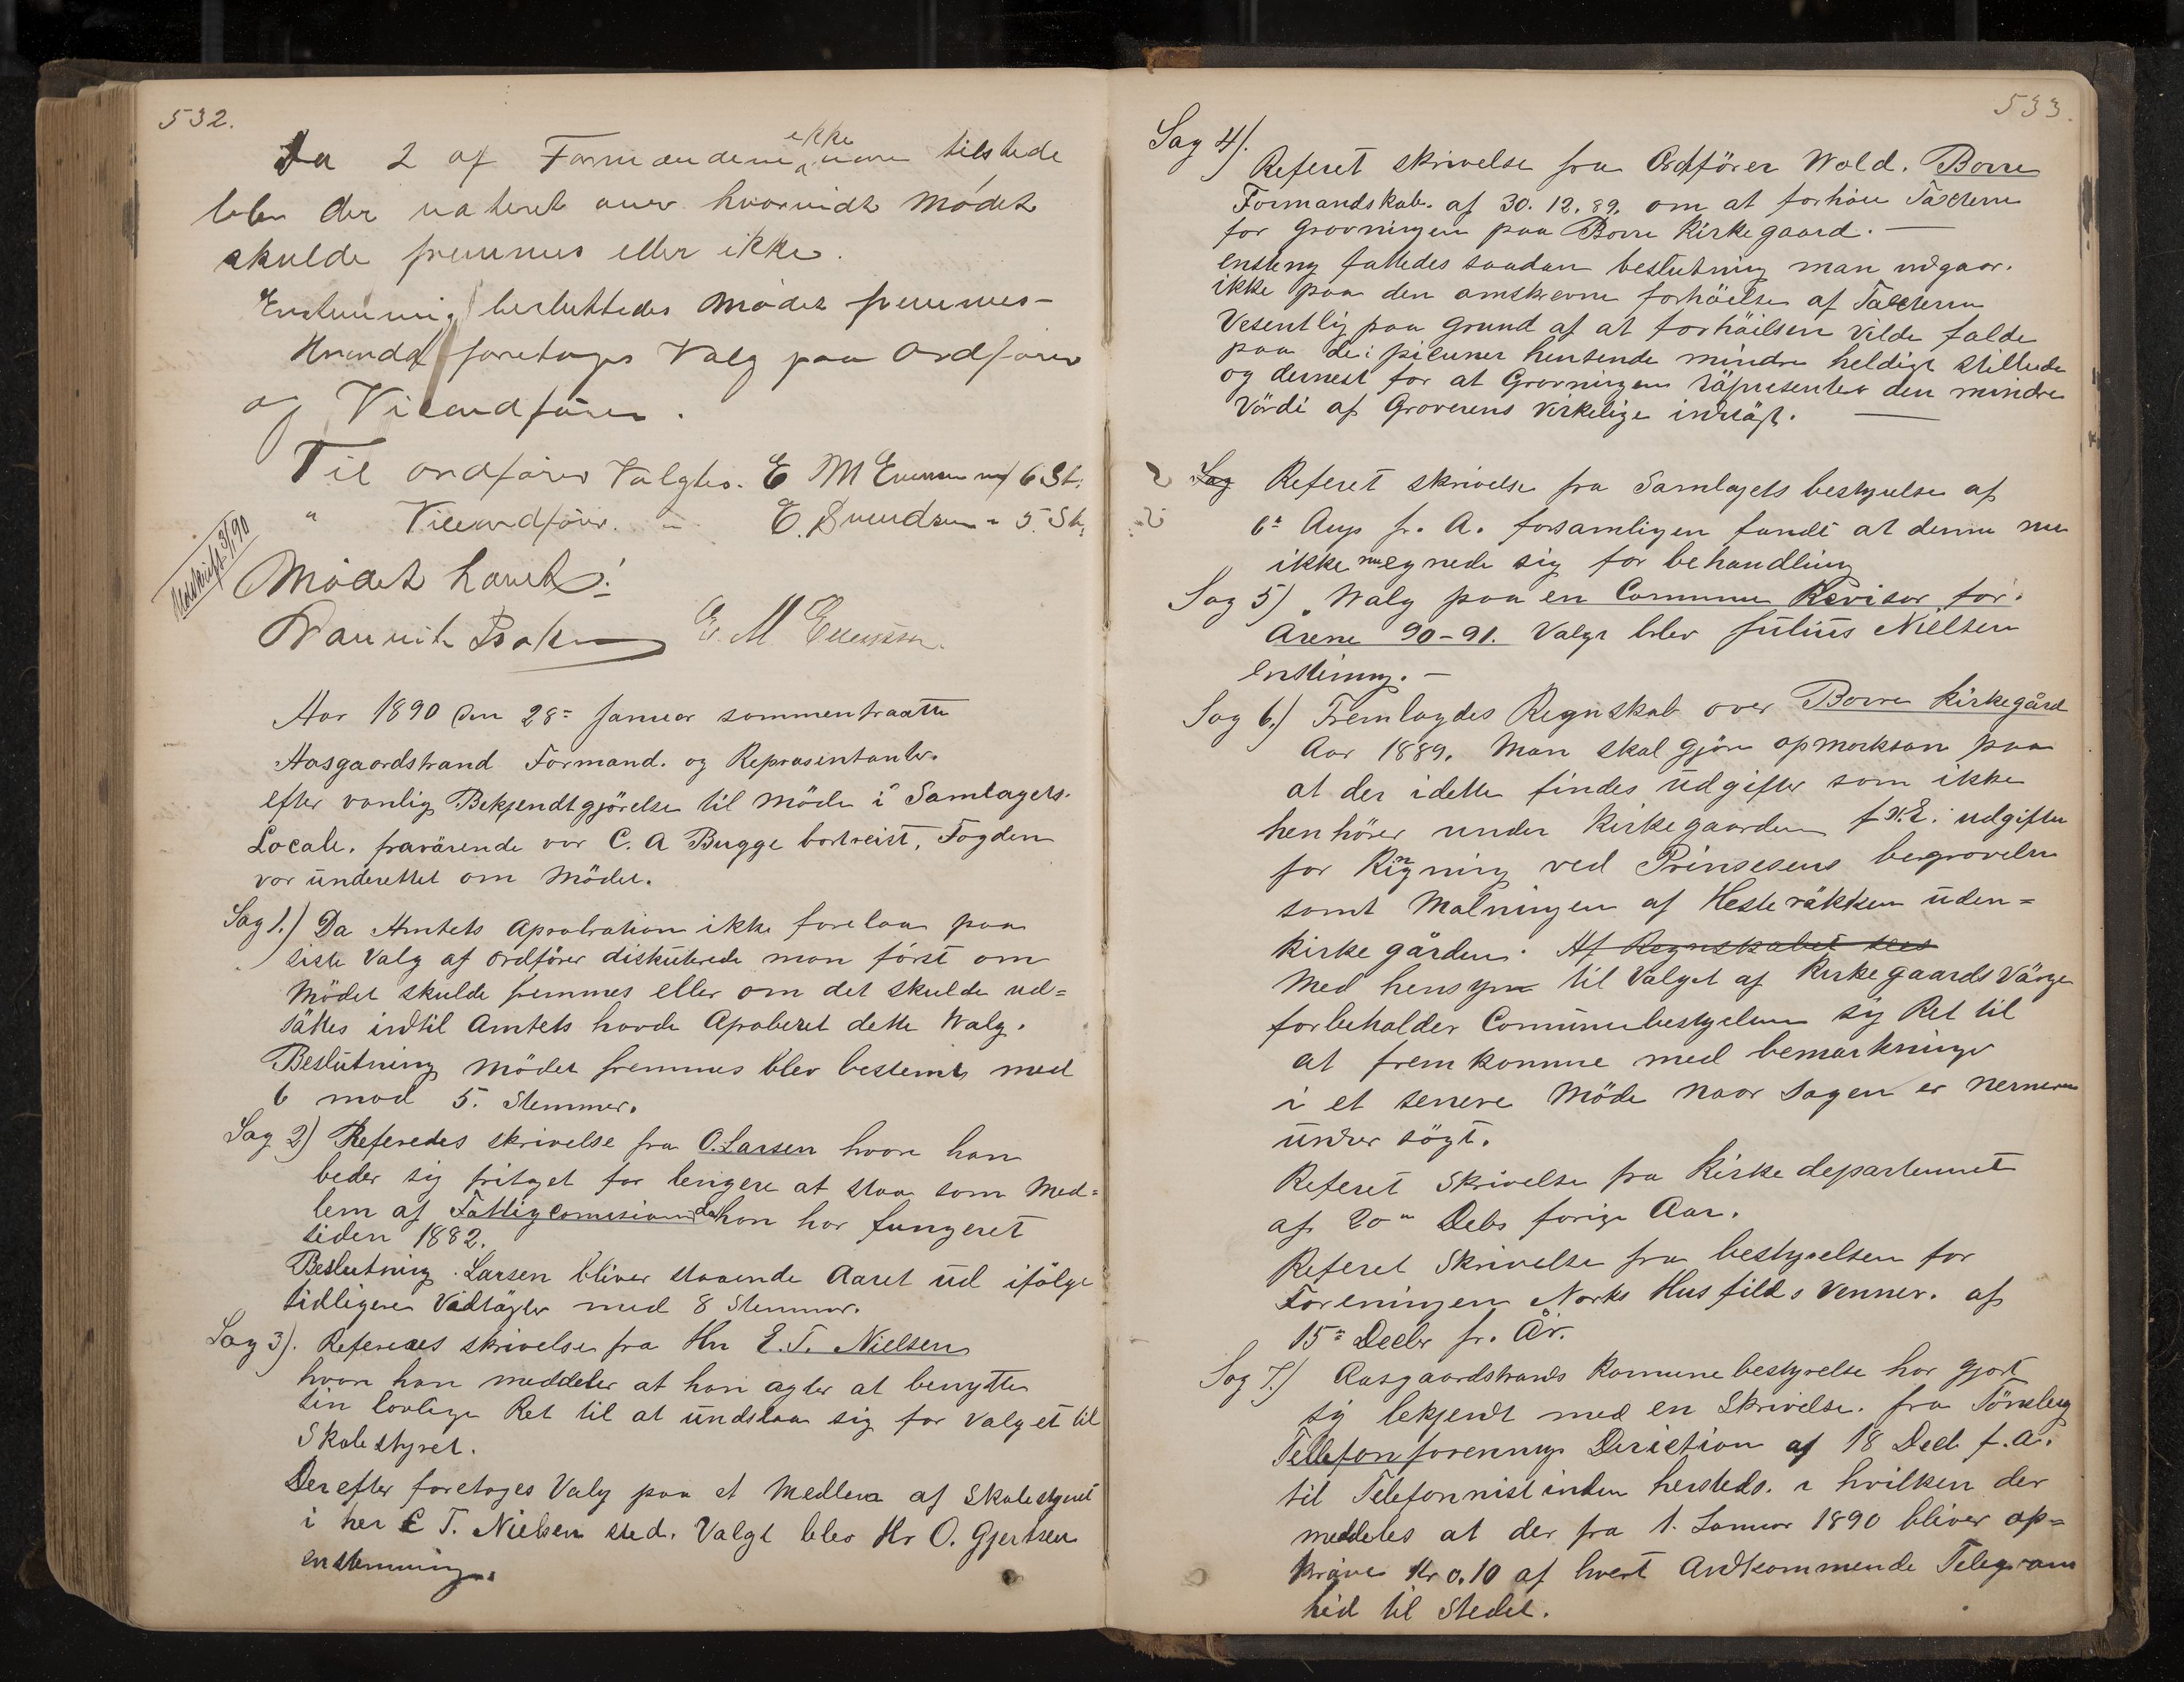 532.
Da 2 af Formændene ikke var tilstede
blev der voteret over hvorvidt Mødet
skulde fremmes eller ikke.
Enstemmig besluttedes Mødet fremmes –
Hvorpaa foretoges Valg paa Ordfører
og Viceordfører.
Til ordfører Valgtes. E M Evensen m/ 6 St.
" Viceordfører. " E. Svendsen " 5. St,
Udskrift 3/1 90
Mødet hævet!
E. M Evensen.
Aar 1890 den 28= Januar sammentraatte
Aasgaardstrand Formand. og Repræsentanter.
efter vanlig Bekjendtgjörelse til Möde i Samlagets.
Locale. fravärende var C. A Bugge bortreist, Fogden
var underettet om Mödet.
Sag 1.) Da Amtets Aprobration ikke forelaa paa
siste Valg af ordförer diskuterede man först om
Mödet skulde fremmes eller om det skulde ud=
sättes indtil Amtets havde Aproberet dette Valg.
Beslutning Mödet fremmes blev bestemt med
6 mod 5. Stemmer.
Sag 2) Referedes skrivelse fra O. Larsen hvori han
beder sig fritaget for lengere at staa som Med=
lem af Fattigcomisionen da han har fungeret
siden 1882.
Beslutning. Larsen bliver staaende Aaret ud ifölge
tidligere Vedtägter med 8 Stemmer.
Sag 3). Refereres skrivelse fra Hr E. T. Nielsen
hvori han meddeler at han agter at benytte
sin lovlige Ret til at undslaa sig for Valget til
Skolestyret.
Derefter foretoges Valg paa et Medlem af Skolestyret
i her E T. Nielsen sted. Valgt blev Hr O. Gjertsen
enstemmig.
533.
Sag 4).
Referet skrivelse fra Ordförer Wold. Borre
Formandskab. af 30. 12. 89. om at forhöie Taxterne
for Gravningen paa Borre Kirkegaard. —
ensteng fattedes saadan beslutning man indgaar.
ikke paa den omskrevne forhöielse af Taxterne
Vesentlig paa grund af at forhöielsen vilde falde
paa de i pecuner henseende mindre heldigt stillede
og dernest for at Gravningen räpresenter den mindre
Värdi af Graverens virkelige indtägt. —
Sag Referet skrivelse fra Samlagets bestyrelse af
6= Aug f. A. forsamligen fandt at denne nu
ikke egnede sig for behandling
Sag 5) Walg paa en Commune Revisor for.
Årene 90–91. Valgt blev Julius Nielsen
enstemg. –
Sag 6.) Fremlagdes Regnskab over Borre Kirkegård
Aar 1889. Man skal gjöre opmerksom paa
at der i dette findes udgifter som ikke
henhörer under Kirkegaarden f x. E. udgifter
for Ringning ved Prinsesens begravelse
samt Malningen af Hesteräkken uden=
kirkegården. Af Regnskabet sees
Med hensyn til Valget af Kirkegaards Värge
forbeholder Comunebestyrelsen sig Ret til
at fremkomme med bemärkninger
i et senere Möde naar Sagen er nermere
under sögt.
Referet Skrivelse fra Kirkedepartemet
af 20= Debr forige Aar.
Referet Skrivelse fra bestyrelsen for
Foreningen Norks Husflids Venner. af
15= Decbr f. År.
Sag 7.) Aasgaardstrands Komunebestyrelse har gjort
sig bekjendt med en Skrivelse. fra Tönsberg
Tellefonforenings Diriction af 18 Decb f. a.
til Telefonnistinden hersteds. i hvilken der
meddeles at der fra 1. Januar 1890 bliver op=
kräves Kr 0.10 af hvert Andkommende Telegram
hid til Stedet.